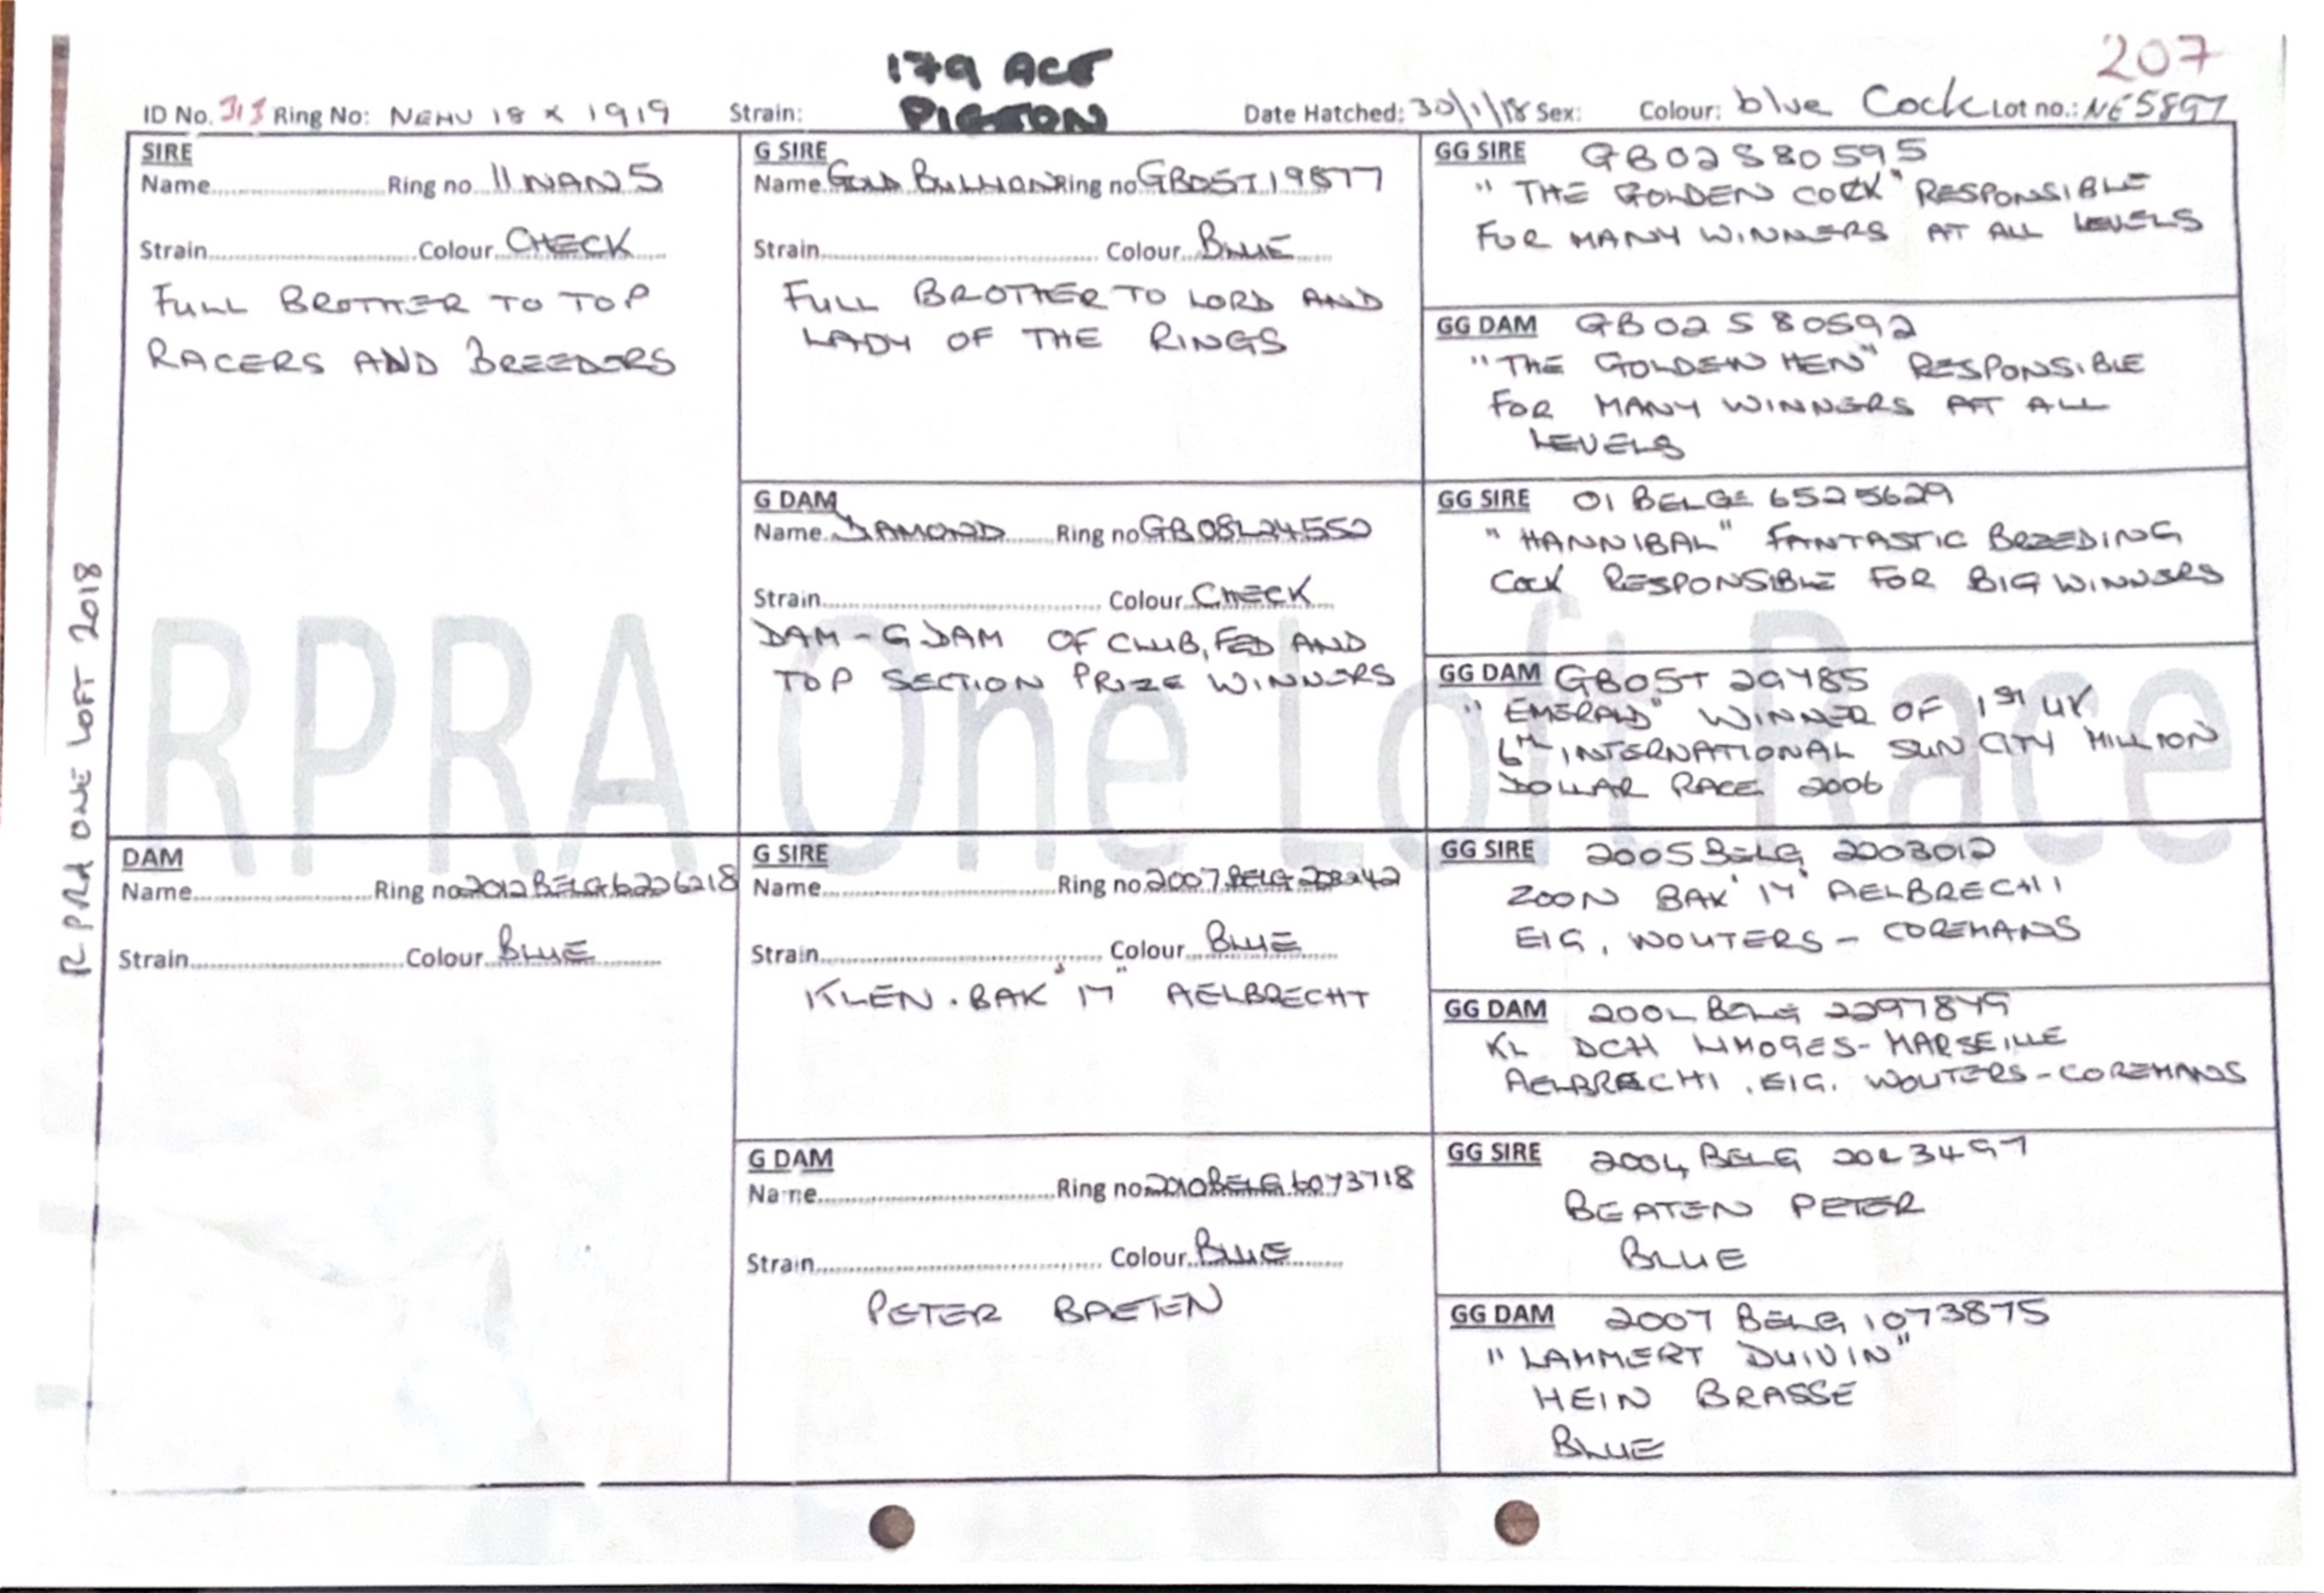 207
179 ACE
PIGEON
ID No. 313 Ring No: NEHU 18 X 1919 Strain: Date Hatched: 30/1/18 Sex: Colour: blue Cock Lot no.: NE5897
RPRA ONE LOFT 2018
RPRA One Loft Race
SIRE
Name Ring no 11NAN5
Strain Colour CHECK
FULL BROTHER TO TOP
RACERS AND BREEDERS
G SIRE
Name GOLD BULLION Ring no GB05T19877
Strain Colour BLUE
FULL BROTHER TO LORD AND
LADY OF THE RINGS
GG SIRE GB02S80595
"THE GOLDEN COCK" RESPONSIBLE
FOR MANY WINNERS AT ALL LEVELS
GG DAM GB02S80592
"THE GOLDEN HEN" RESPONSIBLE
FOR MANY WINNERS AT ALL
LEVELS
G DAM
Name DIAMOND Ring no GB08L24552
Strain Colour CHECK
DAM - G DAM OF CLUB, FED AND
TOP SECTION PRIZE WINNERS
GG SIRE 01 BELGE 6525629
"HANNIBAL" FANTASTIC BREEDING
COCK RESPONSIBLE FOR BIG WINNERS
GG DAM GB05T 29485
"EMERALD" WINNER OF 1ST UK
6TH INTERNATIONAL SUN CITY MILLION
DOLLAR RACE 2006
DAM
Name Ring no 2012 BELG 6226218
Strain Colour BLUE
G SIRE
Name Ring no. 2007 BELG
Strain Colour BLUE
KLEN. BAK "17" AELBRECHT
GG SIRE 2005 BELG 2203012
ZOON BAK '17' AELBRECHT
EIG. WOUTERS - COREMANS
GG DAM BELG 2297849
KL DCH LIMOGES - MARSEILLE
AELBRECHT. EIG. WOUTERS - COREMANS
G DAM
Name Ring no 2010 BELG 6073718
Strain Colour BLUE
PETER BAETEN
GG SIRE 2004 BELG
BEATEN PETER
BLUE
GG DAM 2007 BELG 1073875
"LAMMERT DUIVIN"
HEIN BRASSE
BLUE